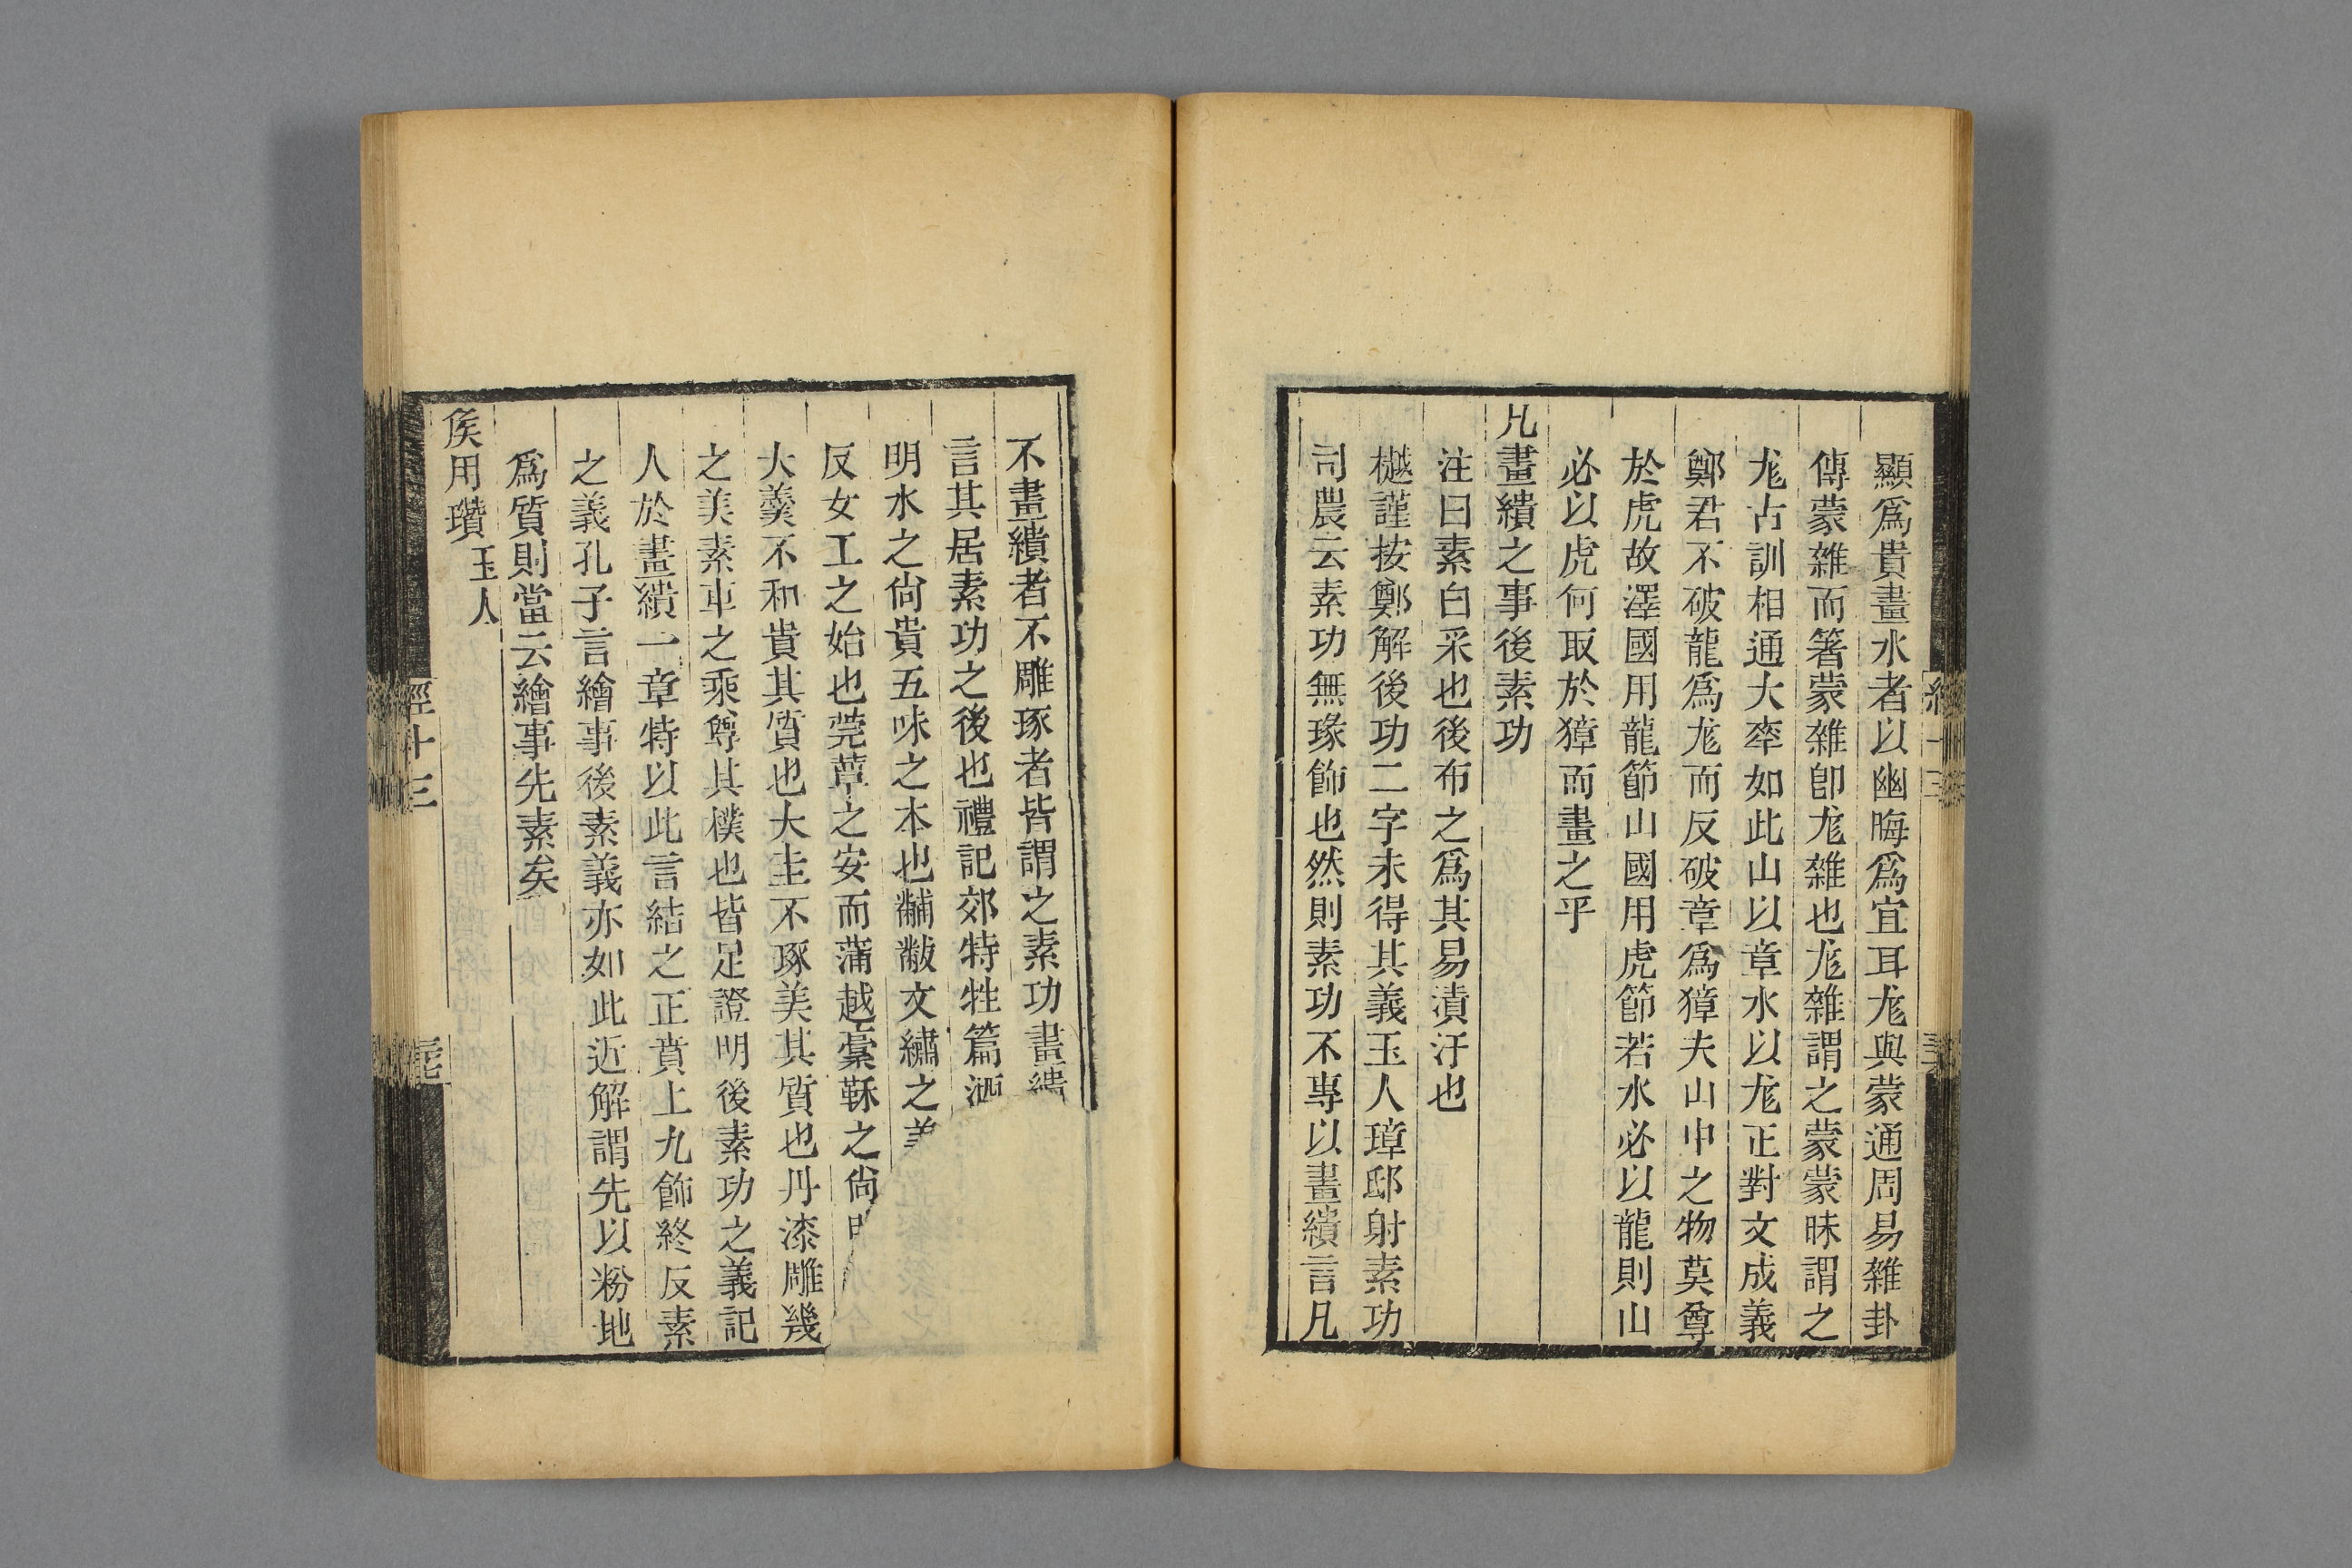 顯爲貴畫水者以幽晦爲宜耳尨與蒙通周易雜卦
傳蒙雜而箸蒙雜卽尨雜也尨雜謂之蒙蒙昧謂之
尨古訓相通大率如此山以章水以尨正對文成義
鄭君不破龍爲尨而反破章爲獐夫山中之物莫尊
於虎故澤國用龍節山國用虎節若水必以龍則山
必以虎何取於獐而畫之乎
凡畫繢之事後素功
注曰素白采也後布之爲其易漬汙也
樾謹按鄭解後功二字未得其義玉人璋邸射素功
司農云素功無瑑飾也然則素功不專以畫繢言凡
不畫繢者不雕琢者皆謂之素功畫繢
言其居素功之後也禮記郊特牲篇酒
明水之尙貴五味之本也黼黻文繡之美
反女工之始也莞蕈之安而蒲越稾鞂之尙
大羹不和貴其質也大圭不琢美其質也丹漆雕幾
之美素車之乘尊其樸也皆足證明後素功之義記
人於畫繢一章特以此言結之正賁上九飾終反素
之義孔子言繪事後素義亦如此近解謂先以粉地
爲質則當云繪事先素矣
侯用瓚 玉人
經十三